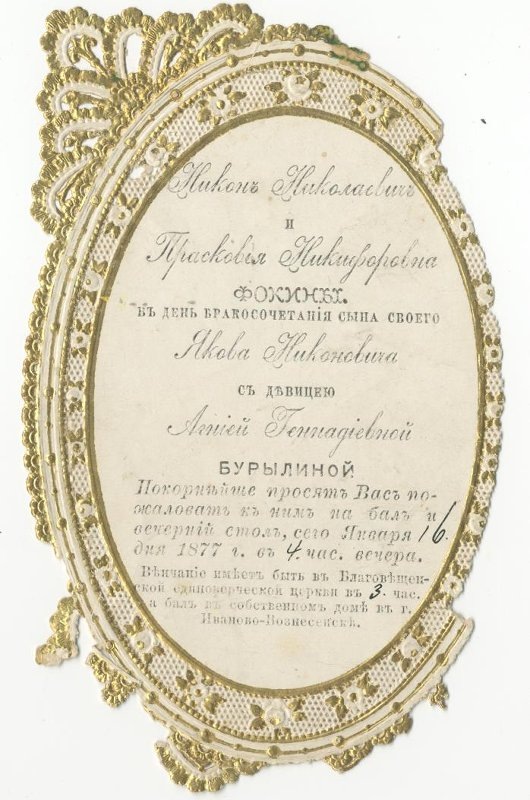 Никонъ Николаевичъ
и
Прасковія Никифоровна
ФОКИНЫ.
ВЪ ДЕНЬ БРАКОСОЧЕТАНІЯ СЫНА СВОЕГО
Якова Никоновича
СЪ ДѢВИЦЕЮ
Агніей Геннадіевной
БУРЫЛИНОЙ
Покорнѣйше просятъ Васъ по-
жаловать къ нимъ на балъ и
вечерній столъ, сего Января 16.
дня 1877 г. въ 4. час. вечера.
Вѣнчаніе имѣетъ быть въ Благовѣщен-
ской единоверческой церкви въ 3. час.
а балъ въ собственномъ домѣ въ г.
Иваново-Вознесенскѣ.